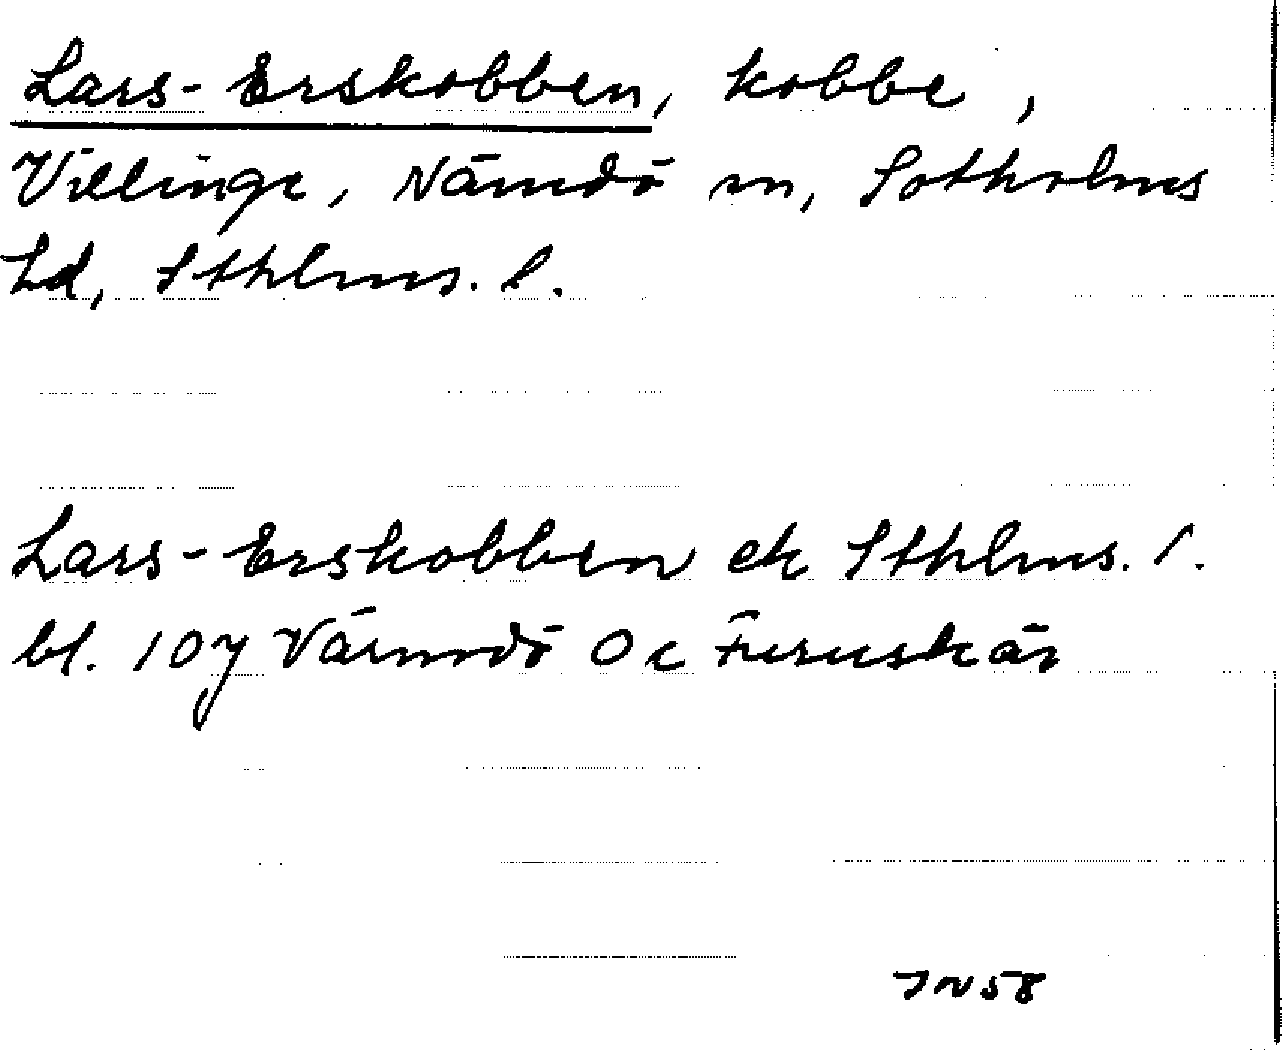 Lars-Erskobben, kobbe,
Villinge, Nämdö sn, Sotholms
hd, Sthlms. l.
Lars-Erskobben ek Sthlms. l.
bl. 107 Värmdö o c Furuskär
IN 58